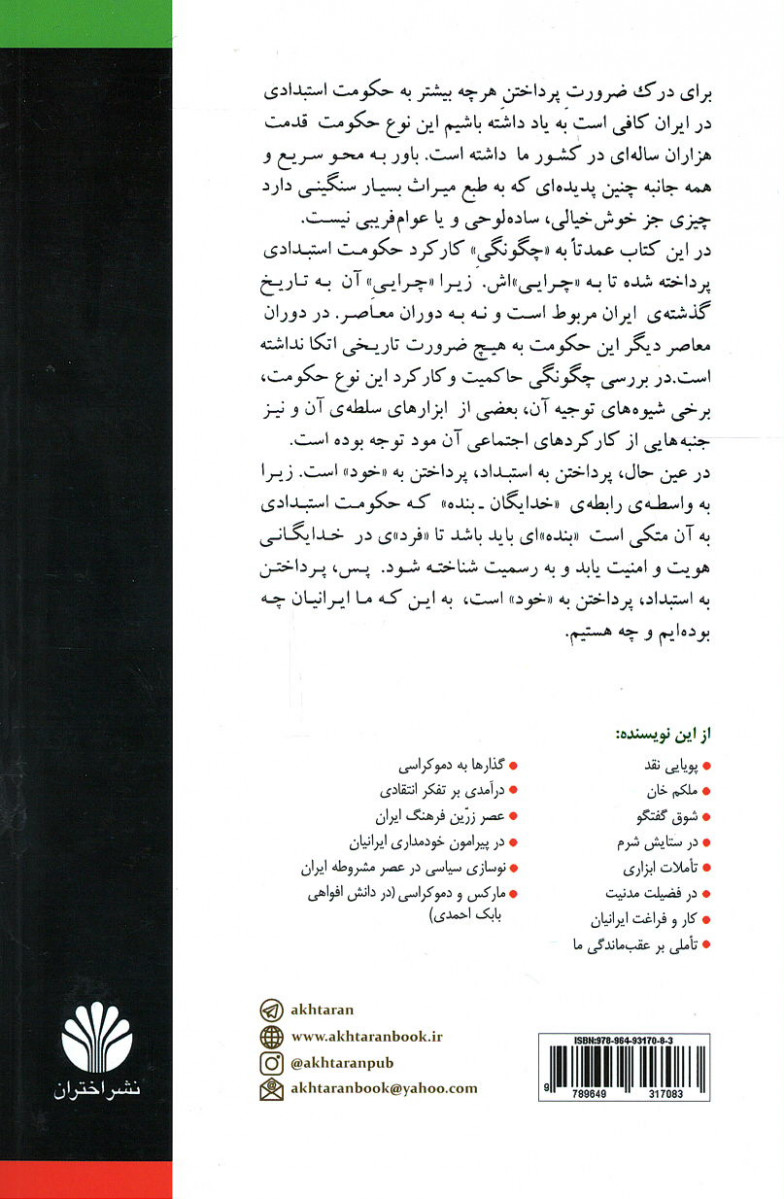 برای درک ضرورتِ پرداختنِ هرچه بیشتر به حکومت استبدادی
در ایران کافی است به یاد داشته باشیم این نوع حکومت قدمت
هزاران ساله‌ای در کشور ما داشته است. باور به محو سریع و
همه جانبه چنین پدیده‌ای که به طبع میراث بسیار سنگینی دارد
چیزی جز خوش‌خیالی، ساده‌لوحی و یا عوام‌فریبی نیست.
در این کتاب عمدتاً به «چگونگیِ» کارکرد حکومت استبدادی
پرداخته شده تا به «چرایی»اش. زیرا «چرایی» آن به تاریخ
گذشته‌ی ایران مربوط است و نه به دوران معاصر. در دوران
معاصر دیگر این حکومت به هیچ ضرورت تاریخی اتکا نداشته
است.در بررسی چگونگی حاکمیت وکارکرد این نوع حکومت،
برخی شیوه‌های توجیه آن، بعضی از ابزارهای سلطه‌ی آن و نیز
جنبه‌هایی از کارکردهای اجتماعی آن مود توجه بوده است.
در عین حال، پرداختن به استبداد، پرداختن به «خود» است. زیرا
به واسطه‌ی رابطه‌ی «خدایگان ـ بنده» که حکومت استبدادی
به آن متکی است «بنده»ای باید باشد تا «فرد»ی در خدایگانی
هویت و امنیت یابد و به رسمیت شناخته شود. پس، پرداختن
به استبداد، پرداختن به «خود» است، به این که ما ایرانیان چه
بوده‌ایم و چه هستیم.
از این نویسنده:
پویایی نقد
ملکم خان
شوق گفتگو
در ستایش شرم
تأملات ابزاری
در فضیلت مدنیت
کار و فراغت ایرانیان
تأملی بر عقب‌ماندگی ما
گذارها به دموکراسی
درآمدی بر تفکر انتقادی
عصر زرّین فرهنگ ایران
در پیرامون خودمداری ایرانیان
نوسازی سیاسی در عصر مشروطه ایران
مارکس و دموکراسی (در دانش افواهی
بابک احمدی)
akhtaran
www.akhtaranbook.ir
@akhtaranpub
akhtaranbook@yahoo.com
ISBN:978-964-93170-8-3
9 789649 317083
نشر اختران